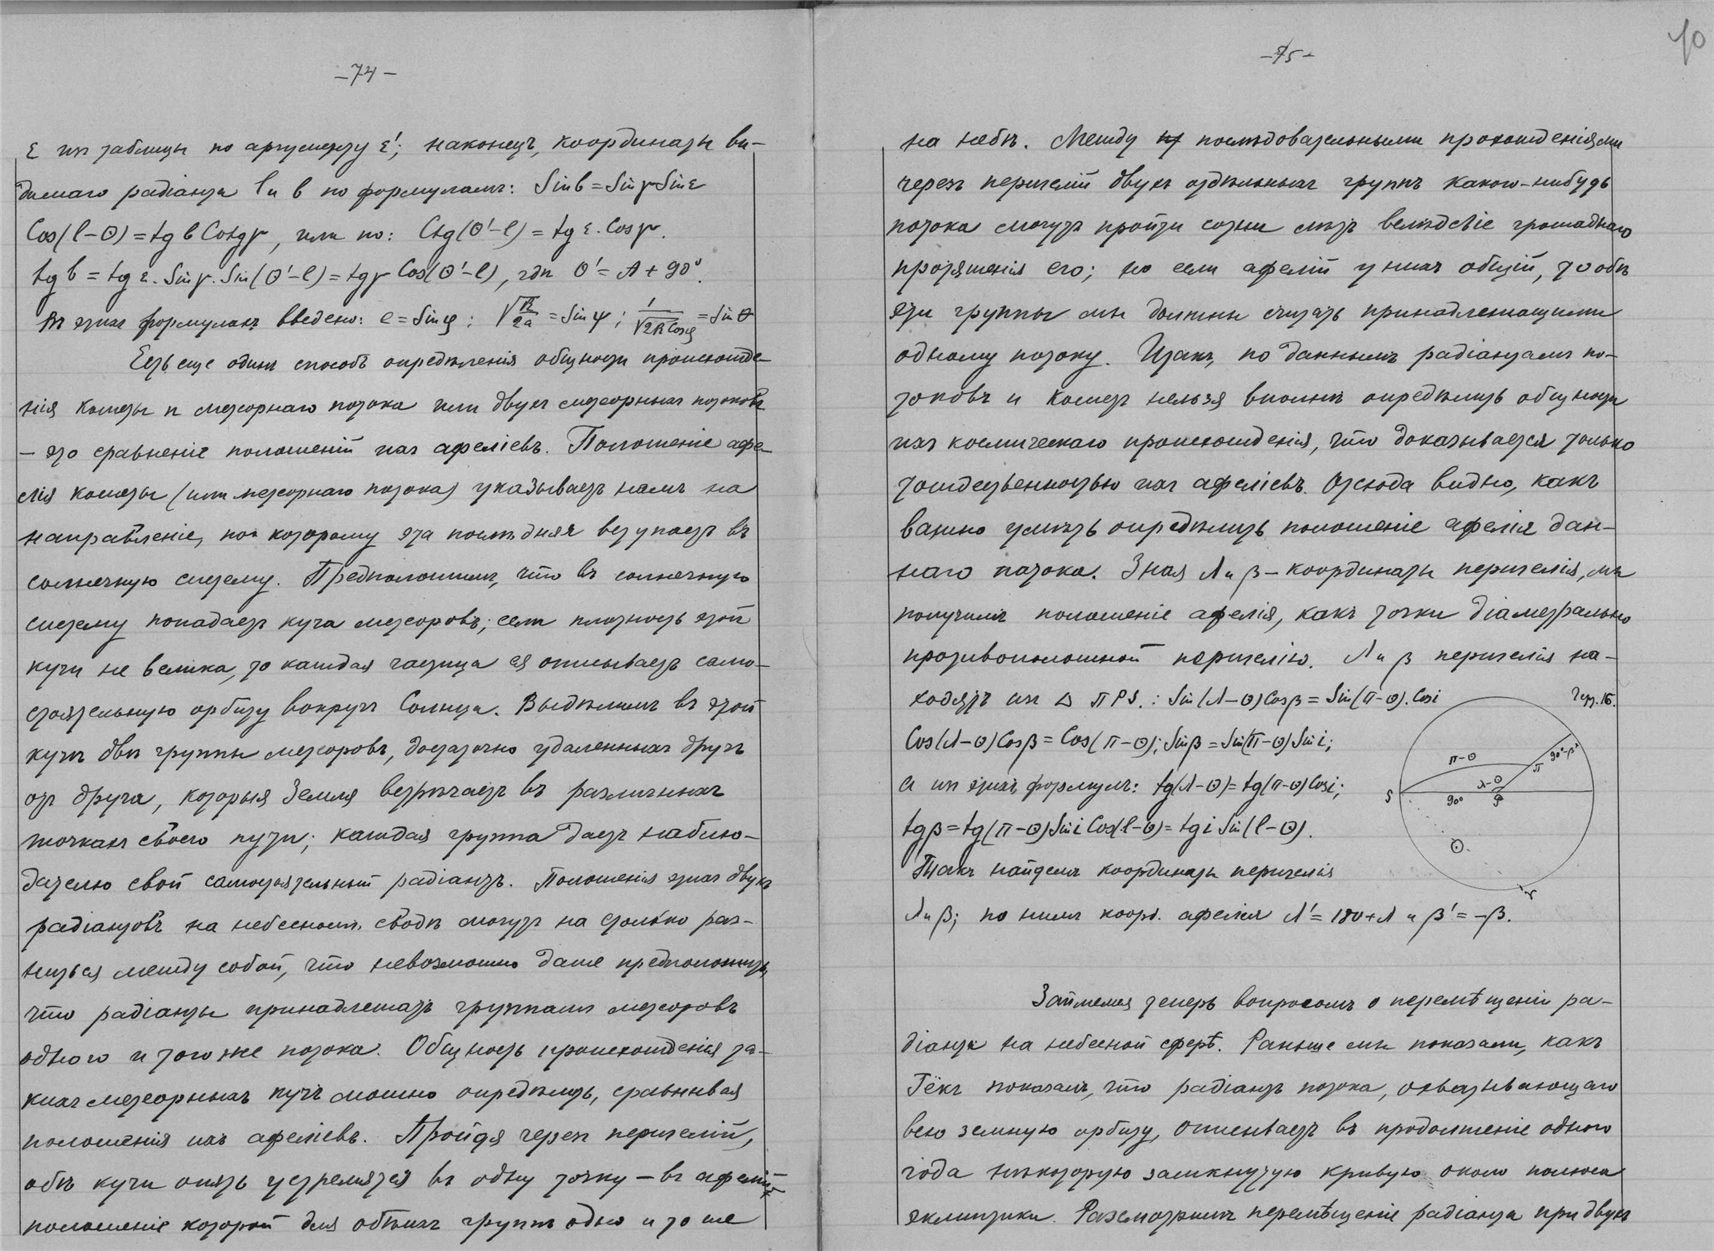 —74—
ε изъ таблицы по аргументу ε'; наконецъ, координаты ви-
димаго радіанта l и b по формуламъ: Sin b = Sin γ Sin ε
Cos(l−⊙) = tg b Cotg γ, или по: Ctg(⊙'−l) = tg ε. Cos γ.
tg b = tg ε. Sin γ. Sin(⊙'−l) = tg γ Cos(⊙'−l), гдѣ ⊙' = A + 90°.
Въ этихъ формулахъ введено: e = Sin φ; √R/2a = Sin ψ; 1/√2R Cos φ = Sin θ
Есть еще одинъ способъ опредѣленія общности происхожде-
нія кометы и метеорнаго потока или двухъ метеорныхъ потоковъ
— это сравненіе положеній ихъ афеліевъ. Положеніе афе-
лія кометы (или метеорнаго потока) указываетъ намъ на
направленіе, по которому эта послѣдняя вступаетъ въ
солнечную систему. Предположимъ, что въ солнечную
систему попадаетъ куча метеоровъ; если плотность этой
кучи не велика, то каждая частица ея описываетъ само-
стоятельную орбиту вокругъ Солнца. Выдѣлимъ въ этой
кучѣ двѣ группы метеоровъ, достаточно удаленныхъ другъ
отъ друга, которыя Земля встрѣчаетъ въ различныхъ
точкахъ своего пути; каждая группа даетъ наблю-
дателю свой самостоятельный радіантъ. Положенія этихъ двухъ
радіантовъ на небесномъ сводѣ могутъ на столько раз-
ниться между собой, что невозможно даже предположить,
что радіанты принадлежатъ группамъ метеоровъ
одного и того же потока. Общность происхожденія та-
кихъ метеорныхъ кучъ можно опредѣлить, сравнивая
положенія ихъ афеліевъ. Пройдя черезъ перигелій,
обѣ кучи опять устремятся въ одну точку — въ афелій,
положеніе которой для обѣихъ группъ одно и то же
—75—
10
на небѣ. Между послѣдовательными прохожденіями
черезъ перигелій двухъ отдѣльныхъ группъ какого-нибудь
потока могутъ пройти сотни лѣтъ вслѣдствіе громаднаго
протяженія его; но если афелій у нихъ общій, то обѣ
эти группы мы должны считать принадлежащими
одному потоку. Итакъ, по даннымъ радіантамъ по-
токовъ и кометъ нельзя вполнѣ опредѣлить общности
ихъ космическаго происхожденія, что доказывается только
тождественностью ихъ афеліевъ. Отсюда видно, какъ
важно умѣть опредѣлить положеніе афелія дан-
наго потока. Зная Λ и β — координаты перигелія, мы
получимъ положеніе афелія, какъ точки діаметрально
противоположной перигелію. Λ и β перигелія на-
ходятъ изъ △ πPS.: Sin(Λ−⊙)Cosβ = Sin(π−⊙).Cos i
Cos(Λ−⊙)Cosβ = Cos(π−⊙); Sinβ = Sin(π−⊙)Sin i;
а изъ этихъ формулъ: tg(Λ−⊙) = tg(π−⊙)Cos i;
tgβ = tg(π−⊙)Sin i Cos(l−⊙) = tg i Sin(l−⊙).
Такъ найдемъ координаты перигелія
Λ и β; по нимъ коорд. афелія Λ' = 180+Λ и β' = −β.
Черт. 16.
π−⊙
π
90°−β
Λ−⊙
S
90°
P
⊙
γ
Займемся теперь вопросомъ о перемѣщеніи ра-
діанта на небесной сферѣ. Раньше мы показали, какъ
Гёкъ показалъ, что радіантъ потока, охватывающаго
всю земную орбиту, описываетъ въ продолженіе одного
года нѣкоторую замкнутую кривую около полюса
эклиптики. Разсмотримъ перемѣщеніе радіанта при двухъ